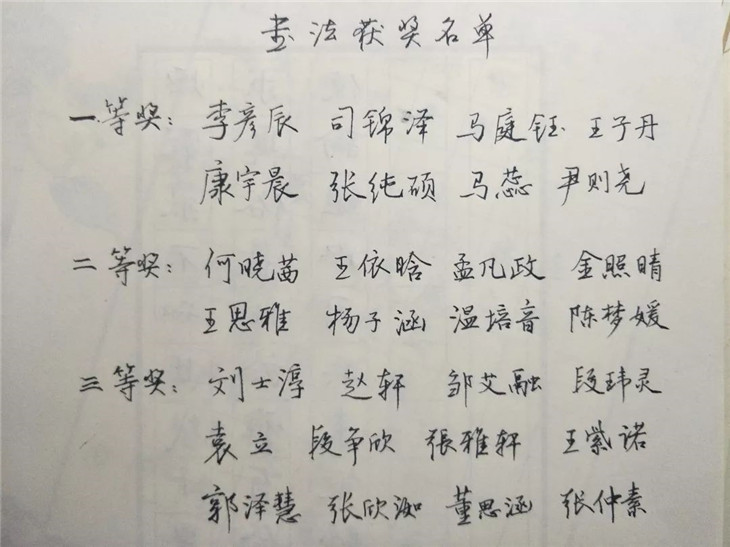 书法获奖名单
一等奖: 李彦辰 司锦泽 马庭钰 王子丹
康宇晨 张纯硕 马蕊 尹则尧
二等奖: 何晓茜 王依晗 孟凡政 金照晴
王思雅 杨子涵 温培音 陈梦媛
三等奖: 刘士淳 赵轩 邹艾融 段玮灵
袁立 段争欣 張雅轩 王紫诺
郭泽慧 张欣洳 董思涵 张仲素